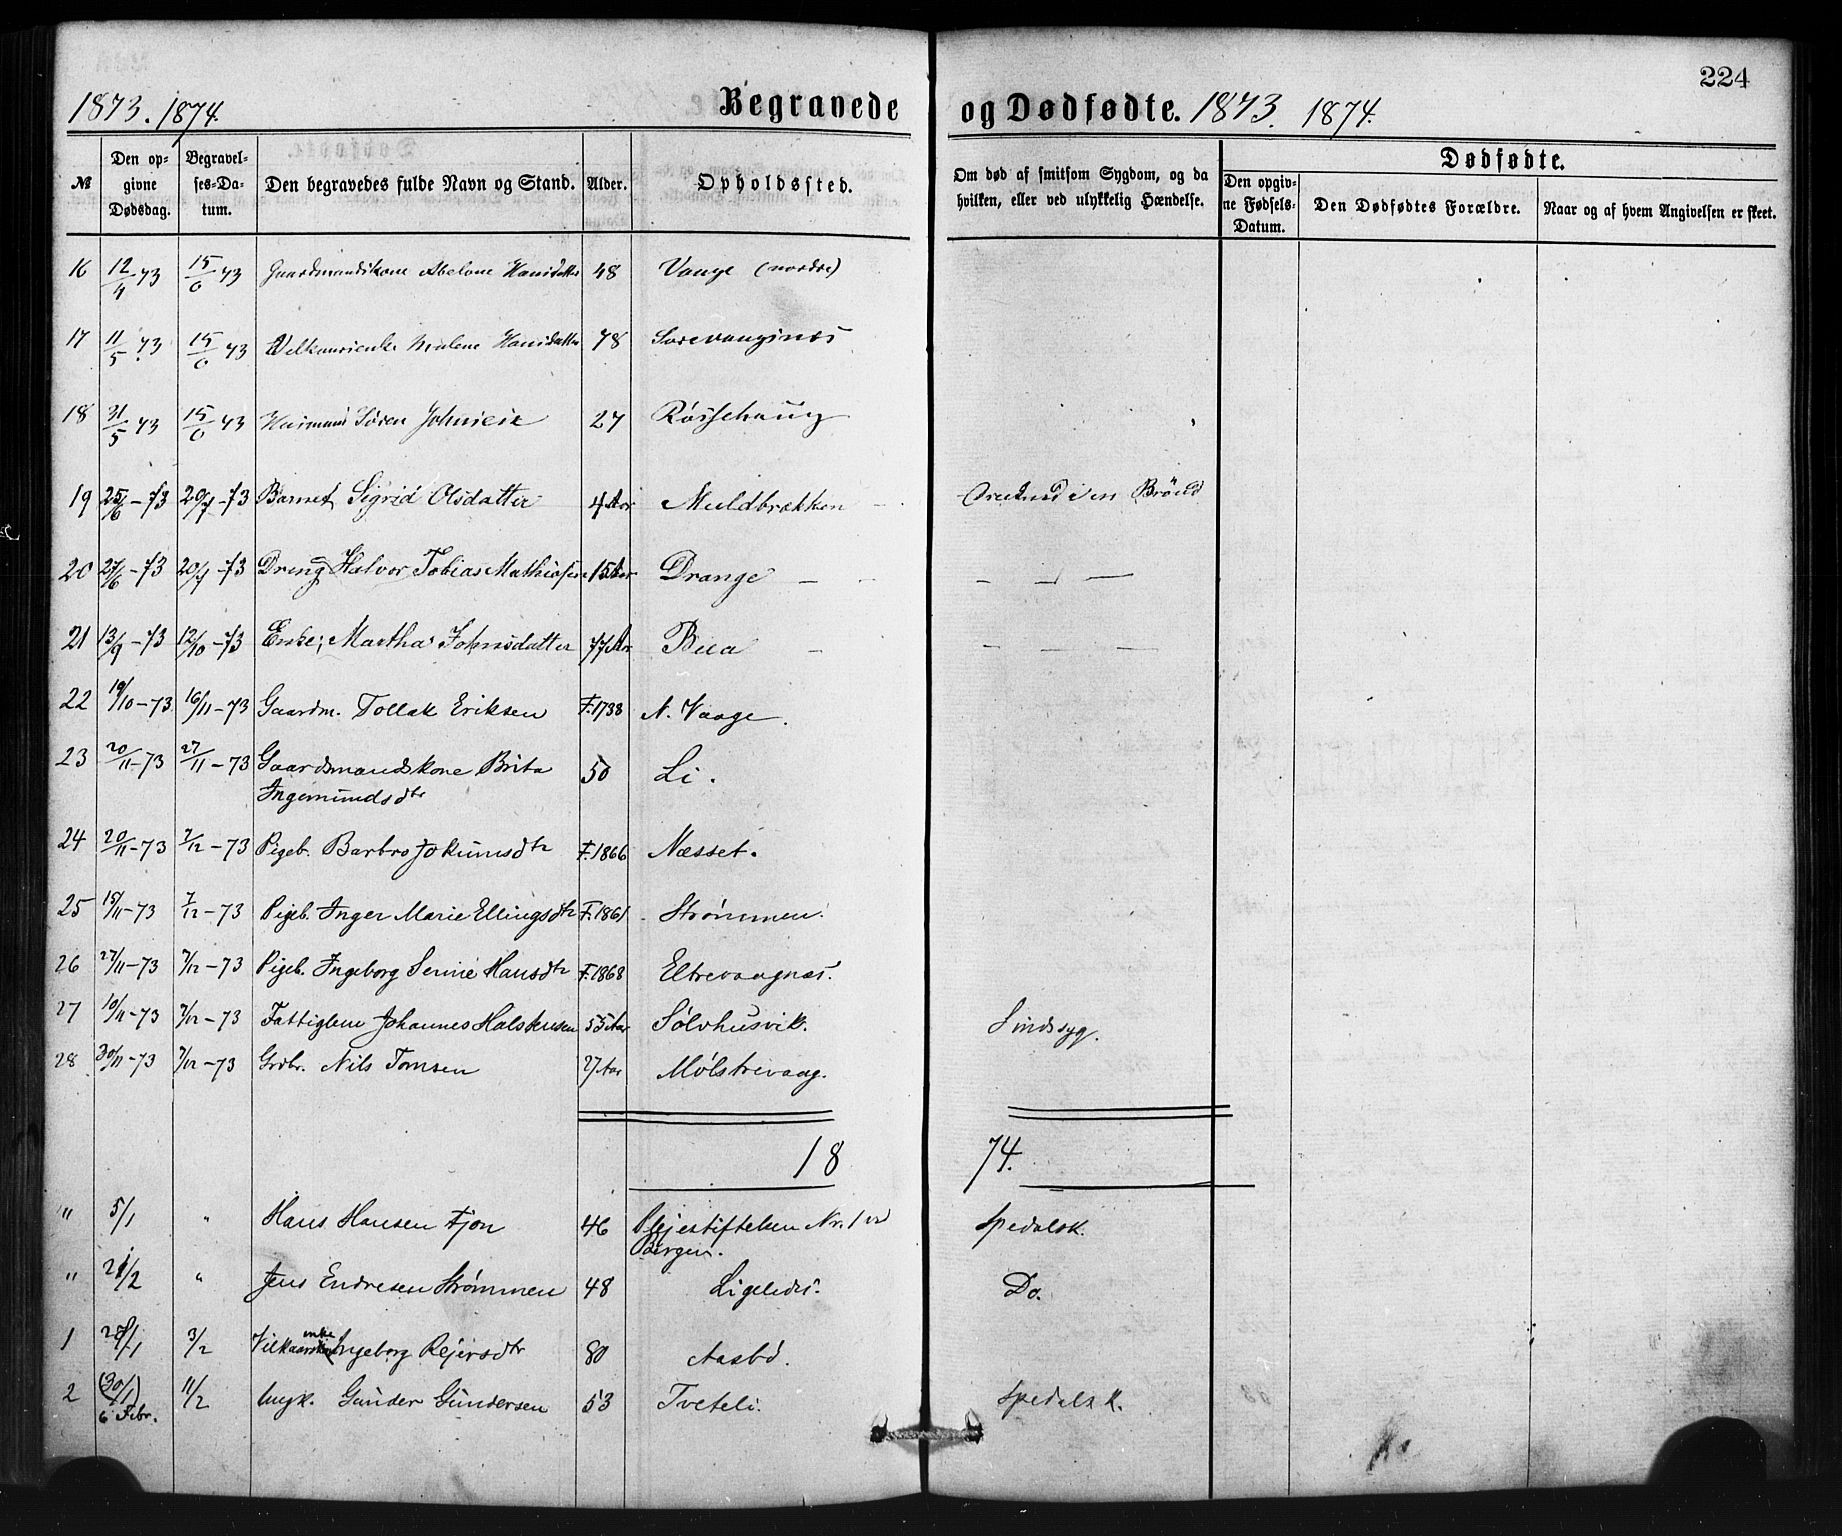 224
1873. 1874. Begravede og Dødfødte. 1873. 1874.
№ Den opgivne Dødsdag. Begravelses-Datum. Den begravedes fulde Navn og Stand. Alder. Opholdssted. Om død af smitsom Sygdom, og da hvilken, eller ved ulykkelig Hændelse. Dødfødte. Den opgivne Fødsels-Datum. Den Dødfødtes Forældre. Naar og af hvem Angivelsen er skeet.
16 12/4 73 15/6 73 Gaardmandskone Abelone Hansdatter 48 Vaage (nordre)
17 11/5 73 15/6 73 Malene Hansdatter 78
18 31/5 73 15/6 73 Husmand Søren Johnsen 27 Røssehaug
19 25/6 - 73 20/7 - 73 Barnet Sigrid Olsdatter 4 Aar Muldbrækken - Drukned i en Brønd
20 27/6 - 73 20/7 - 73 Dreng Halvor Tobias Mathiasen 15 Aar Drange - - - - -
21 13/9 - 73 12/10 - 73 Enke, Martha Johnsdatter 77 Aar Bua - - - -
22 19/10 - 73 16/11 - 73 Gaardm. Tollak Eriksen F. 1738 N. Vaage.
23 20/11 - 73 27/11 - 73 Gaardsmandskone Brita 50 Li.
Ingemundsdtr
24 20/11 - 73 7/12 - 73 Pigeb. Barbro Jokumsdtr F. 1866 Næsset.
25 15/11 - 73 7/12 - 73 Pigeb. Inger Marie Ellingsdtr F. 1861 Strømmen.
26 27/11 - 73 7/12 - 73 Pigeb. Ingeborg Serine Hansdtr F. 1868 Eltrevaagnæs.
27 10/11 - 73 7/12 - 73 Fattiglem Johannes Halstensen 55 Aar Sølvhusvik. Sindssyg.
28 30/11 - 73 7/12 - 73 Grdbr. Nils Tomsen 27 Aar Mølstrevaag.
18 74.
" 5/1 " Hans Hansen Fjon 46 Plejestiftelsen Nr. 1 ved Spedalsk.
Bergen.
" 21/2 " Jens Endresen Strømmen 48 Ligeledes. Do.
1 28/1 3/2 Vilkaarsenke Ingeborg Rejersdtr 80 Aasbø.
2 (30/1) 11/2 Ungk. Gunder Gundersen 53 Tveteli. Spedalsk.
6 Febr.